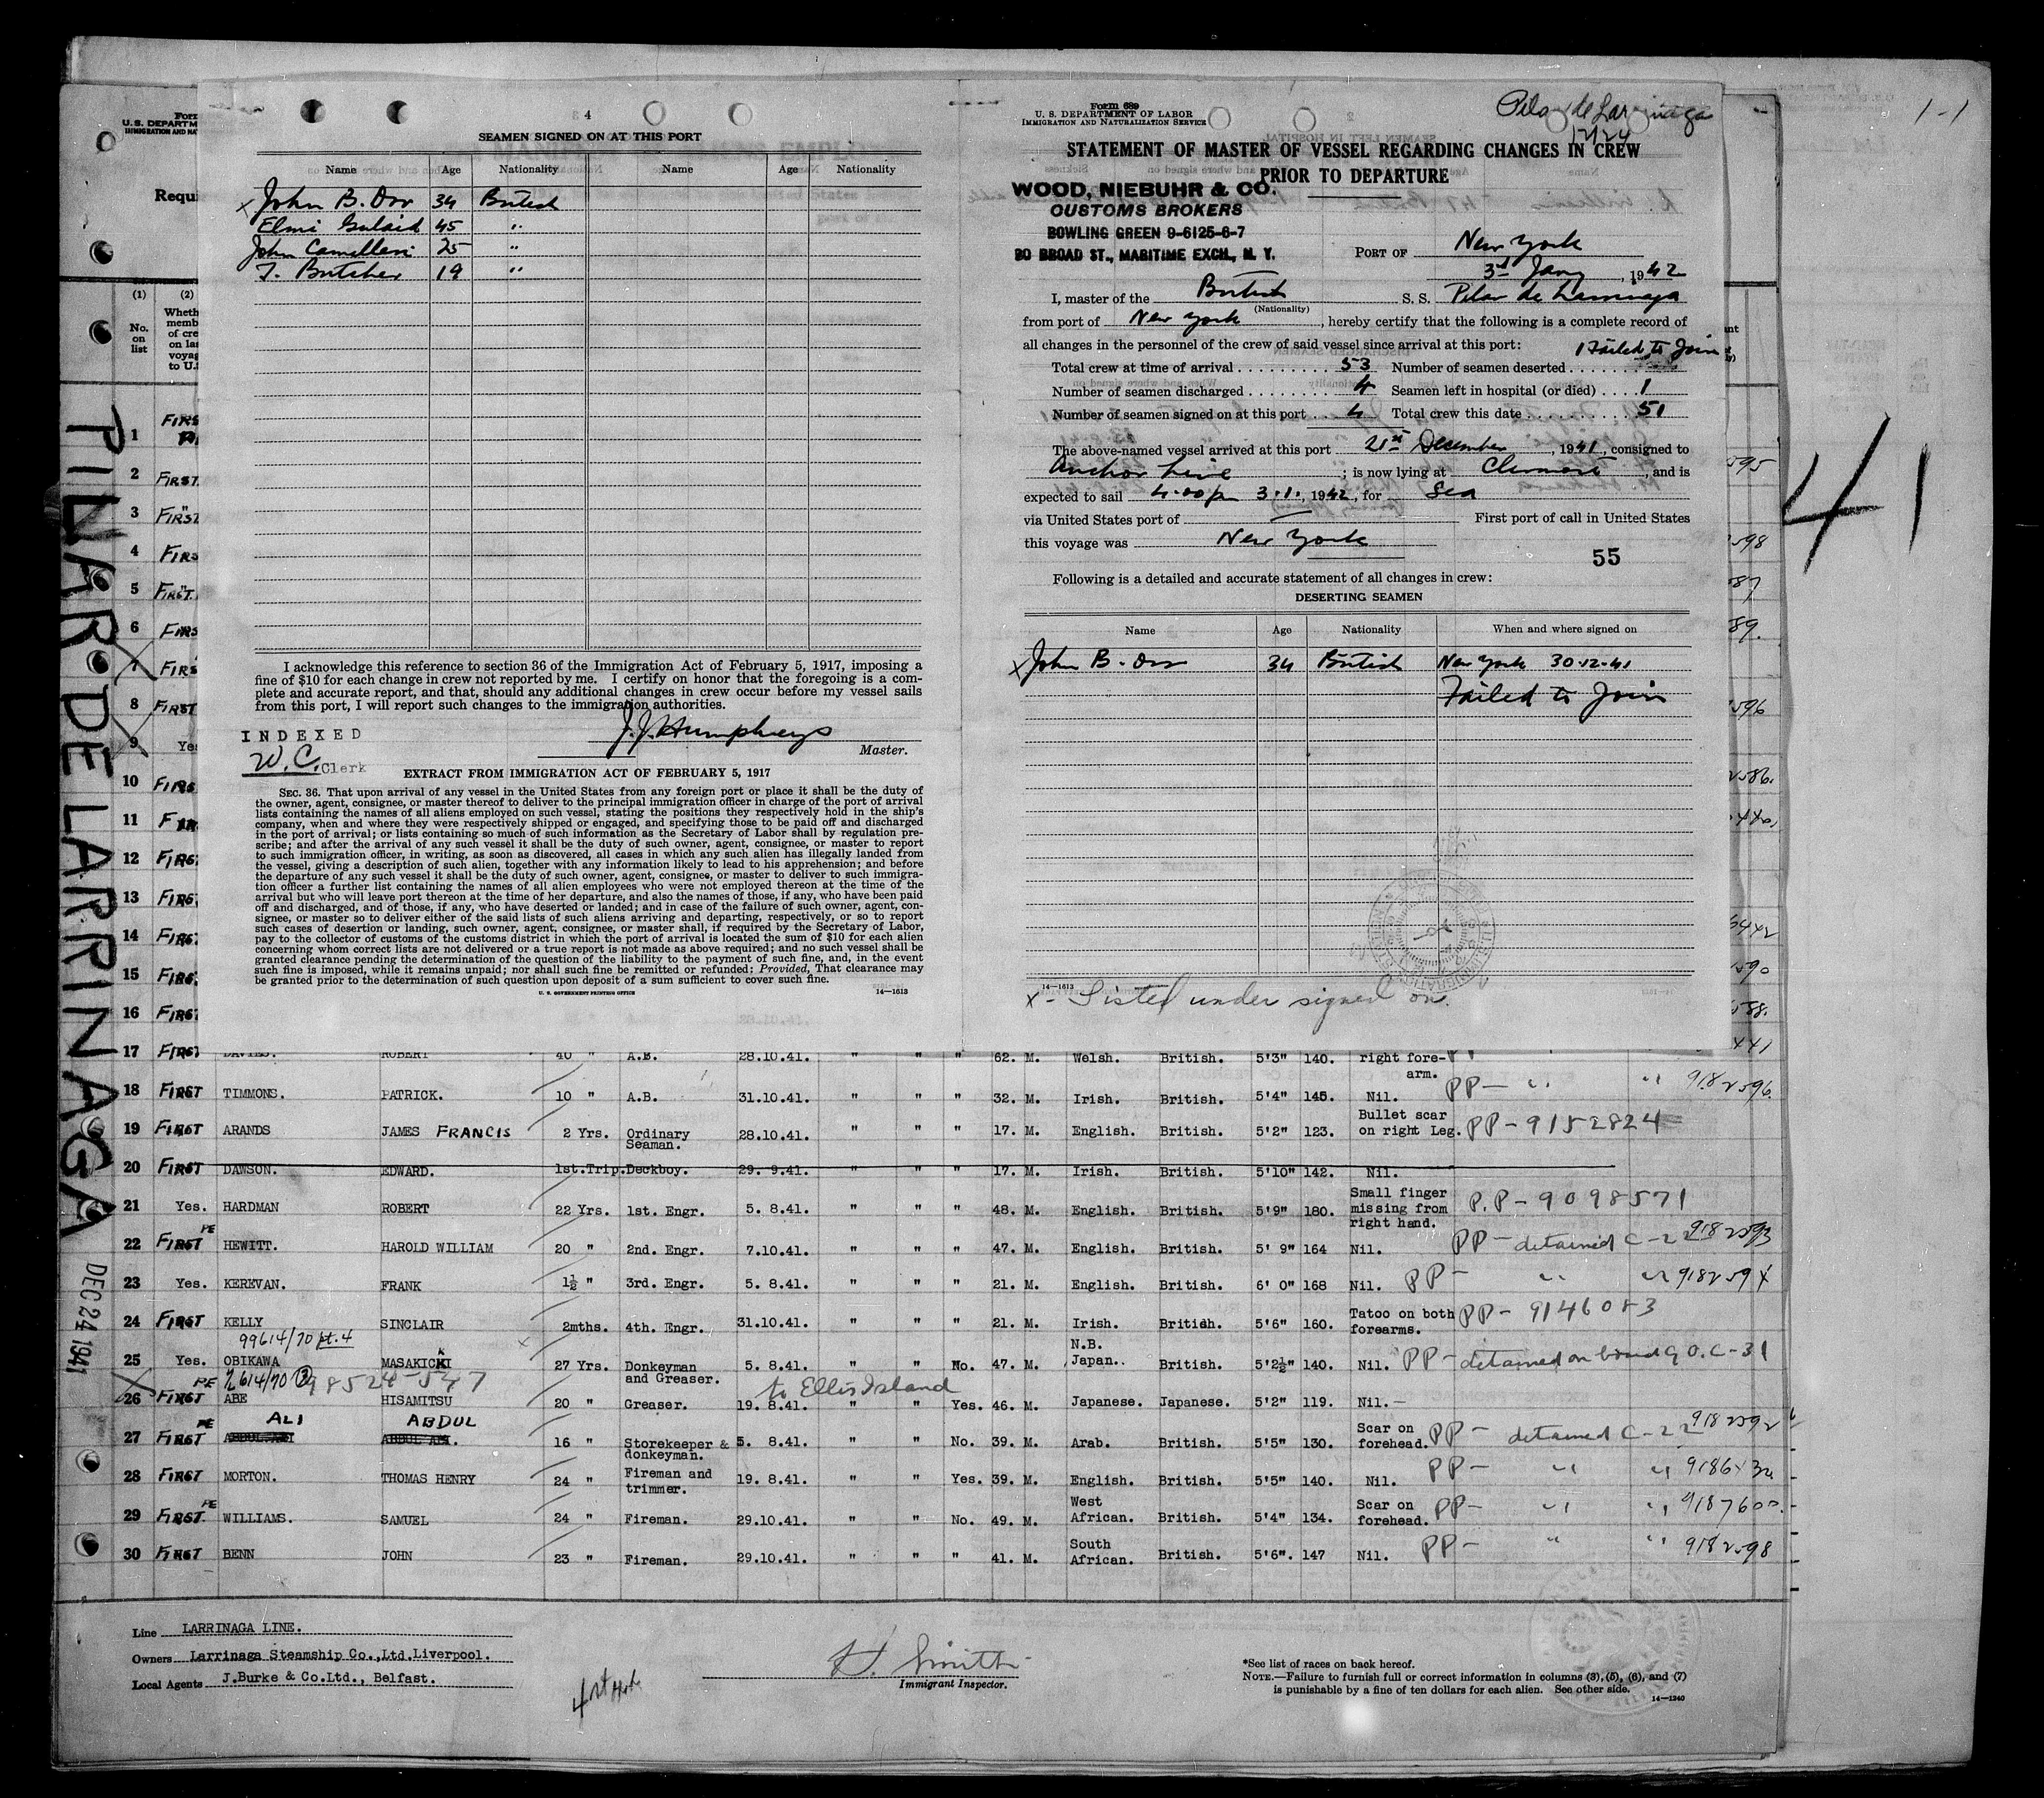 4
SEAMEN SIGNED ON AT THIS PORT
Name Age Nationality Name Age Nationality
x John B. Orr 34 British
Elmi 45 "
John Camelleri 25 "
T. Butcher 19 "
I acknowledge this reference to section 36 of the Immigration Act of February 5, 1917, imposing a
fine of $10 for each change in crew not reported by me. I certify on honor that the foregoing is a com-
plete and accurate report, and that, should any additional changes in crew occur before my vessel sails
from this port, I will report such changes to the immigration authorities.
J. J. Humphreys
Master.
INDEXED
W. C. Clerk
EXTRACT FROM IMMIGRATION ACT OF FEBRUARY 5, 1917
SEC. 36. That upon arrival of any vessel in the United States from any foreign port or place it shall be the duty of
the owner, agent, consignee, or master thereof to deliver to the principal immigration officer in charge of the port of arrival
lists containing the names of all aliens employed on such vessel, stating the positions they respectively hold in the ship's
company, when and where they were respectively shipped or engaged, and specifying those to be paid off and discharged
in the port of arrival; or lists containing so much of such information as the Secretary of Labor shall by regulation pre-
scribe; and after the arrival of any such vessel it shall be the duty of such owner, agent, consignee, or master to report
to such immigration officer, in writing, as soon as discovered, all cases in which any such alien has illegally landed from
the vessel, giving a description of such alien, together with any information likely to lead to his apprehension; and before
the departure of any such vessel it shall be the duty of such owner, agent, consignee, or master to deliver to such immigra-
tion officer a further list containing the names of all alien employees who were not employed thereon at the time of the
arrival but who will leave port thereon at the time of her departure, and also the names of those, if any, who have been paid
off and discharged, and of those, if any, who have deserted or landed; and in case of the failure of such owner, agent, con-
signee, or master so to deliver either of the said lists of such aliens arriving and departing, respectively, or so to report
such cases of desertion or landing, such owner, agent, consignee, or master shall, if required by the Secretary of Labor,
pay to the collector of customs of the customs district in which the port of arrival is located the sum of $10 for each alien
concerning whom correct lists are not delivered or a true report is not made as above required; and no such vessel shall be
granted clearance pending the determination of the question of the liability to the payment of such fine, and, in the event
such fine is imposed, while it remains unpaid; nor shall such fine be remitted or refunded: Provided, That clearance may
be granted prior to the determination of such question upon deposit of a sum sufficient to cover such fine.
U. S. GOVERNMENT PRINTING OFFICE 14—1613
Form 689
U. S. DEPARTMENT OF LABOR
IMMIGRATION AND NATURALIZATION SERVICE
Pilar de Larrinaga
12/24
STATEMENT OF MASTER OF VESSEL REGARDING CHANGES IN CREW
PRIOR TO DEPARTURE
WOOD, NIEBUHR & CO.
CUSTOMS BROKERS
BOWLING GREEN 9-6125-6-7
80 BROAD ST., MARITIME EXCH., N. Y.
PORT OF New York
3rd Jany, 1942
I, master of the British S. S. Pilar de Larrinaga
(Nationality)
from port of New York, hereby certify that the following is a complete record of
all changes in the personnel of the crew of said vessel since arrival at this port:
1 Failed to Join
Total crew at time of arrival 53 Number of seamen deserted
Number of seamen discharged 4 Seamen left in hospital (or died) 1
Number of seamen signed on at this port 4 Total crew this date 51
The above-named vessel arrived at this port 21st December, 1941, consigned to
Anchor Line; is now lying at Claremont, and is
expected to sail 4.00pm 3.1., 1942, for Sea
via United States port of — First port of call in United States
this voyage was New York
55
Following is a detailed and accurate statement of all changes in crew:
DESERTING SEAMEN
Name Age Nationality When and where signed on
x John B. Orr 34 British New York 30.12.41
Failed to Join
14—1613
x - Listed under signed on.
1-1
41
PILAR DE LARRINAGA
DEC 24 1941
Form
U. S. DEPARTM
IMMIGRATION AND NA
Requi
(1) (2)
No. on list
Wheth
memb
of cre
on las
voyag
to U.
17 FIRST DAVIES. ROBERT 40 " A.B. 28.10.41. " " " 62. M. Welsh. British. 5'3" 140. right fore-arm.
18 FIRST TIMMONS. PATRICK. 10 " A.B. 31.10.41. " " " 32. M. Irish. British. 5'4" 145. Nil. PP — " " 9182596.
19 FIRST ARANDS JAMES FRANCIS 2 Yrs. Ordinary Seaman. 28.10.41. " " " 17. M. English. British. 5'2" 123. Bullet scar on right Leg. PP-9152824
20 FIRST DAWSON. EDWARD. 1st.Trip. Deckboy. 29. 9.41. " " " 17. M. Irish. British. 5'10" 142. Nil.
21 Yes. HARDMAN ROBERT 22 Yrs. 1st. Engr. 5. 8.41. " " " 48. M. English. British. 5'9" 180. Small finger missing from right hand. P.P-9098571
22 FIRST PE HEWITT. HAROLD WILLIAM 20 " 2nd. Engr. 7.10.41. " " " 47. M. English. British. 5' 9" 164 Nil. PP — detained C-22 9182593
23 Yes. KEREVAN. FRANK 1½ " 3rd. Engr. 5. 8.41. " " " 21. M. English. British. 6' 0" 168 Nil. PP- " " 9182594
24 FIRST KELLY SINCLAIR 2mths. 4th. Engr. 31.10.41. " " " 21. M. Irish. British. 5'6" 160. Tatoo on both forearms. PP-9146083
99614/70 pt.4
25 Yes. OBIKAWA MASAKICKI 27 Yrs. Donkeyman and Greaser. 5. 8.41. " " No. 47. M. N.B. Japan.. 5'2½" 140. Nil. PP-detained on board G O.C-31
to Ellis Island
26 FIRST PE ABE HISAMITSU 20 " Greaser. 19. 8.41. " " Yes. 46. M. Japanese. Japanese. 5'2" 119. Nil.—
27 FIRST PE ALI ABDUL 16 " Storekeeper & donkeyman. 5. 8.41. " " No. 39. M. Arab. British. 5'5" 130. Scar on forehead. PP — detained C-22 9182592
28 FIRST MORTON. THOMAS HENRY 24 " Fireman and trimmer. 19. 8.41. " " Yes. 39. M. English. British. 5'5" 140. Nil. PP- " "
29 FIRST PE WILLIAMS. SAMUEL 24 " Fireman. 29.10.41. " " No. 49. M. West African. British. 5'4" 134. Scar on forehead. PP- " " 9187600.
30 FIRST BENN JOHN 23 " Fireman. 29.10.41. " " " 41. M. South African. British. 5'6". 147 Nil. PP- " " 9182598
Line LARRINAGA LINE.
Owners Larrinaga Steamship Co.,Ltd.Liverpool.
Local Agents J.Burke & Co.Ltd., Belfast.
H. Smith
Immigrant Inspector.
*See list of races on back hereof.
NOTE.—Failure to furnish full or correct information in columns (3), (5), (6), and (7)
is punishable by a fine of ten dollars for each alien. See other side.
14—1240